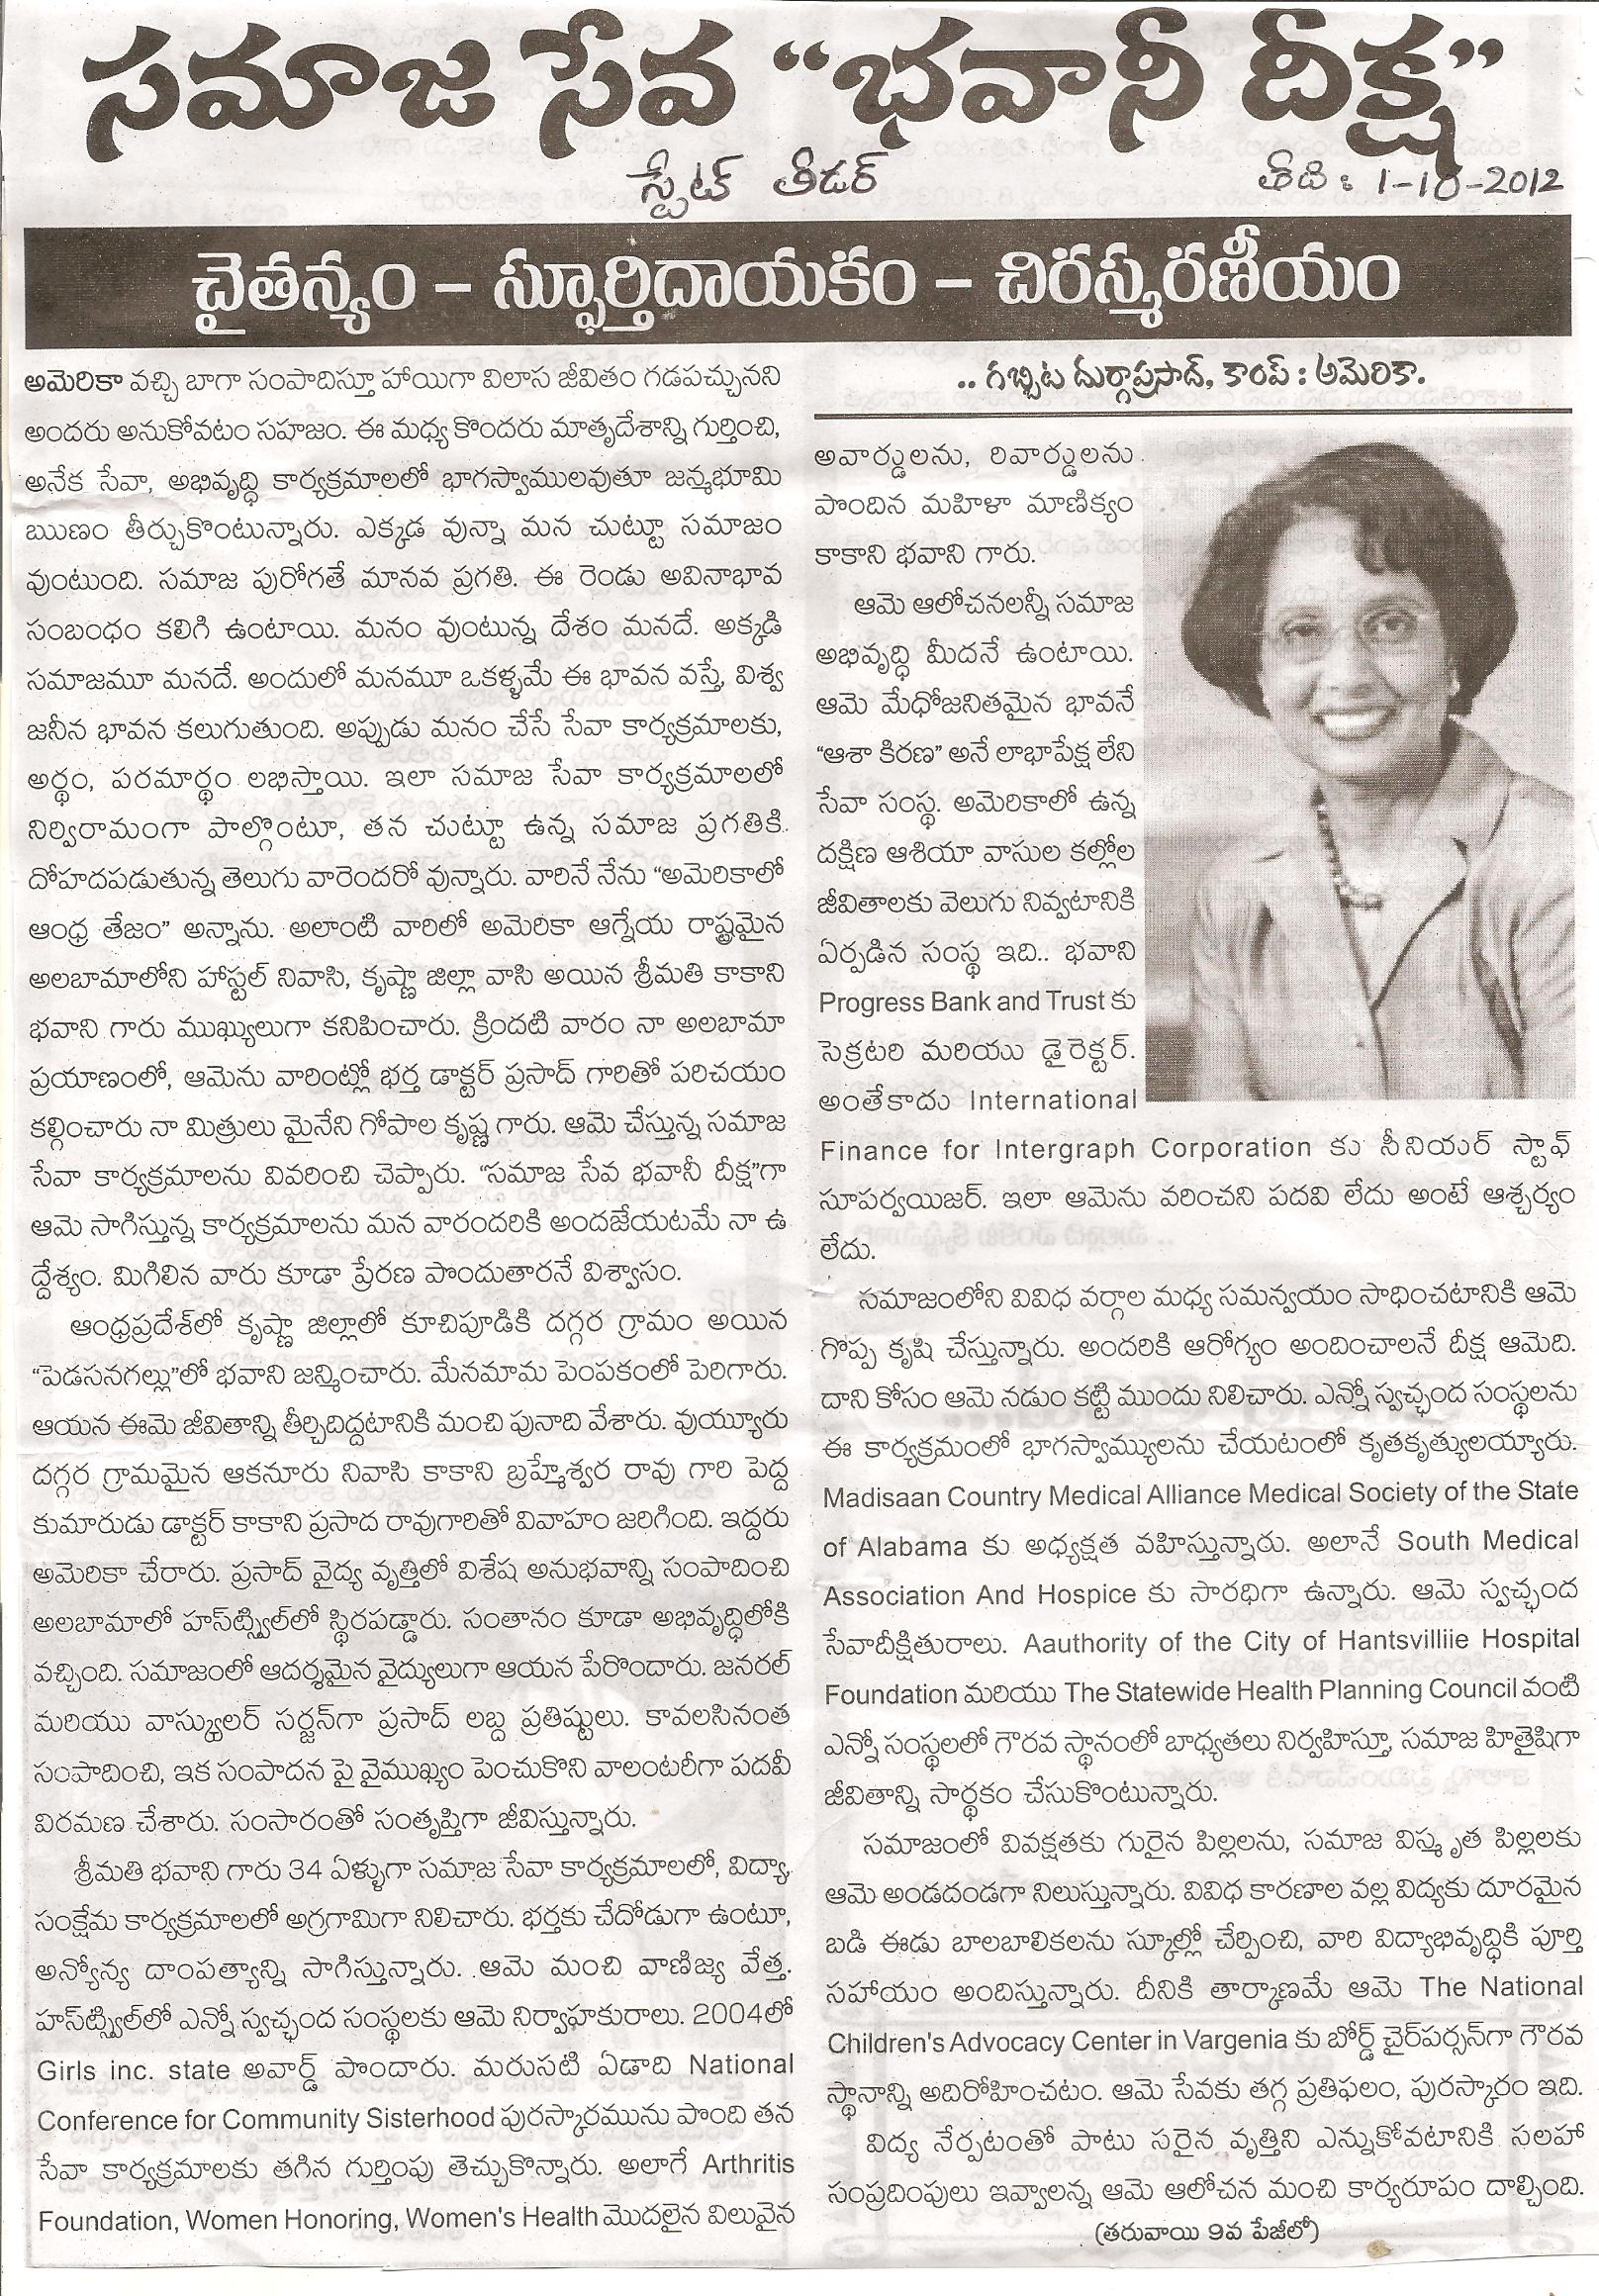 సమాజ సేవ “భవానీ దీక్ష”
స్టేట్ లీడర్
తేది : 1-10-2012
చైతన్యం – స్ఫూర్తిదాయకం – చిరస్మరణీయం
అమెరికా వచ్చి బాగా సంపాదిస్తూ హాయిగా విలాస జీవితం గడపచ్చునని
అందరు అనుకోవటం సహజం. ఈ మధ్య కొందరు మాతృదేశాన్ని గుర్తించి,
అనేక సేవా, అభివృద్ధి కార్యక్రమాలలో భాగస్వాములవుతూ జన్మభూమి
ఋణం తీర్చుకొంటున్నారు. ఎక్కడ వున్నా మన చుట్టూ సమాజం
వుంటుంది. సమాజ పురోగతే మానవ ప్రగతి. ఈ రెండు అవినాభావ
సంబంధం కలిగి ఉంటాయి. మనం వుంటున్న దేశం మనదే. అక్కడి
సమాజమూ మనదే. అందులో మనమూ ఒకళ్ళమే ఈ భావన వస్తే, విశ్వ
జనీన భావన కలుగుతుంది. అప్పుడు మనం చేసే సేవా కార్యక్రమాలకు,
అర్థం, పరమార్థం లభిస్తాయి. ఇలా సమాజ సేవా కార్యక్రమాలలో
నిర్విరామంగా పాల్గొంటూ, తన చుట్టూ ఉన్న సమాజ ప్రగతికి
దోహదపడుతున్న తెలుగు వారెందరో వున్నారు. వారినే నేను “అమెరికాలో
ఆంధ్ర తేజం” అన్నాను. అలాంటి వారిలో అమెరికా ఆగ్నేయ రాష్ట్రమైన
అలబామాలోని హాస్టల్ నివాసి, కృష్ణా జిల్లా వాసి అయిన శ్రీమతి కాకాని
భవాని గారు ముఖ్యులుగా కనిపించారు. క్రిందటి వారం నా అలబామా
ప్రయాణంలో, ఆమెను వారింట్లో భర్త డాక్టర్ ప్రసాద్ గారితో పరిచయం
కల్గించారు నా మిత్రులు మైనేని గోపాల కృష్ణ గారు. ఆమె చేస్తున్న సమాజ
సేవా కార్యక్రమాలను వివరించి చెప్పారు. “సమాజ సేవ భవానీ దీక్ష”గా
ఆమె సాగిస్తున్న కార్యక్రమాలను మన వారందరికి అందజేయటమే నా ఉ
ద్దేశ్యం. మిగిలిన వారు కూడా ప్రేరణ పొందుతారనే విశ్వాసం.
ఆంధ్రప్రదేశ్‌లో కృష్ణా జిల్లాలో కూచిపూడికి దగ్గర గ్రామం అయిన
“పెడసనగల్లు”లో భవాని జన్మించారు. మేనమామ పెంపకంలో పెరిగారు.
ఆయన ఈమె జీవితాన్ని తీర్చిదిద్దటానికి మంచి పునాది వేశారు. వుయ్యూరు
దగ్గర గ్రామమైన ఆకనూరు నివాసి కాకాని బ్రహ్మేశ్వర రావు గారి పెద్ద
కుమారుడు డాక్టర్ కాకాని ప్రసాద రావుగారితో వివాహం జరిగింది. ఇద్దరు
అమెరికా చేరారు. ప్రసాద్ వైద్య వృత్తిలో విశేష అనుభవాన్ని సంపాదించి
అలబామాలో హస్‌ట్స్విల్‌లో స్థిరపడ్డారు. సంతానం కూడా అభివృద్ధిలోకి
వచ్చింది. సమాజంలో ఆదర్శమైన వైద్యులుగా ఆయన పేరొందారు. జనరల్
మరియు వాస్క్యులర్ సర్జన్‌గా ప్రసాద్ లబ్ద ప్రతిష్టులు. కావలసినంత
సంపాదించి, ఇక సంపాదన పై వైముఖ్యం పెంచుకొని వాలంటరీగా పదవీ
విరమణ చేశారు. సంసారంతో సంతృప్తిగా జీవిస్తున్నారు.
శ్రీమతి భవాని గారు 34 ఏళ్ళుగా సమాజ సేవా కార్యక్రమాలలో, విద్యా,
సంక్షేమ కార్యక్రమాలలో అగ్రగామిగా నిలిచారు. భర్తకు చేదోడుగా ఉంటూ,
అన్యోన్య దాంపత్యాన్ని సాగిస్తున్నారు. ఆమె మంచి వాణిజ్య వేత్త.
హస్‌ట్స్విల్‌లో ఎన్నో స్వచ్ఛంద సంస్థలకు ఆమె నిర్వాహకురాలు. 2004లో
Girls inc. state అవార్డ్ పొందారు. మరుసటి ఏడాది National
Conference for Community Sisterhood పురస్కారమును పొంది తన
సేవా కార్యక్రమాలకు తగిన గుర్తింపు తెచ్చుకొన్నారు. అలాగే Arthritis
Foundation, Women Honoring, Women's Health మొదలైన విలువైన
.. గబ్బిట దుర్గాప్రసాద్, కాంప్ : అమెరికా.
అవార్డులను, రివార్డులను
పొందిన మహిళా మాణిక్యం
కాకాని భవాని గారు.
ఆమె ఆలోచనలన్నీ సమాజ
అభివృద్ధి మీదనే ఉంటాయి.
ఆమె మేధోజనితమైన భావనే
“ఆశా కిరణ” అనే లాభాపేక్ష లేని
సేవా సంస్థ. అమెరికాలో ఉన్న
దక్షిణ ఆశియా వాసుల కల్లోల
జీవితాలకు వెలుగు నివ్వటానికి
ఏర్పడిన సంస్థ ఇది.. భవాని
Progress Bank and Trust కు
సెక్రటరి మరియు డైరెక్టర్.
అంతేకాదు International
Finance for Intergraph Corporation కు సీనియర్ స్టాఫ్
సూపర్వయిజర్. ఇలా ఆమెను వరించని పదవి లేదు అంటే ఆశ్చర్యం
లేదు.
సమాజంలోని వివిధ వర్గాల మధ్య సమన్వయం సాధించటానికి ఆమె
గొప్ప కృషి చేస్తున్నారు. అందరికి ఆరోగ్యం అందించాలనే దీక్ష ఆమెది.
దాని కోసం ఆమె నడుం కట్టి ముందు నిలిచారు. ఎన్నో స్వచ్ఛంద సంస్థలను
ఈ కార్యక్రమంలో భాగస్వామ్యులను చేయటంలో కృతకృత్యులయ్యారు.
Madisaan Country Medical Alliance Medical Society of the State
of Alabama కు అధ్యక్షత వహిస్తున్నారు. అలానే South Medical
Association And Hospice కు సారధిగా ఉన్నారు. ఆమె స్వచ్ఛంద
సేవాదీక్షితురాలు. Aauthority of the City of Hantsvilliie Hospital
Foundation మరియు The Statewide Health Planning Council వంటి
ఎన్నో సంస్థలలో గౌరవ స్థానంలో బాధ్యతలు నిర్వహిస్తూ, సమాజ హితైషిగా
జీవితాన్ని సార్థకం చేసుకొంటున్నారు.
సమాజంలో వివక్షతకు గురైన పిల్లలను, సమాజ విస్మృత పిల్లలకు
ఆమె అండదండగా నిలుస్తున్నారు. వివిధ కారణాల వల్ల విద్యకు దూరమైన
బడి ఈడు బాలబాలికలను స్కూల్లో చేర్పించి, వారి విద్యాభివృద్ధికి పూర్తి
సహాయం అందిస్తున్నారు. దీనికి తార్కాణమే ఆమె The National
Children's Advocacy Center in Vargenia కు బోర్డ్ చైర్‌పర్సన్‌గా గౌరవ
స్థానాన్ని అదిరోహించటం. ఆమె సేవకు తగ్గ ప్రతిఫలం, పురస్కారం ఇది.
విద్య నేర్పటంతో పాటు సరైన వృత్తిని ఎన్నుకోవటానికి సలహా
సంప్రదింపులు ఇవ్వాలన్న ఆమె ఆలోచన మంచి కార్యరూపం దాల్చింది.
(తరువాయి 9వ పేజీలో)